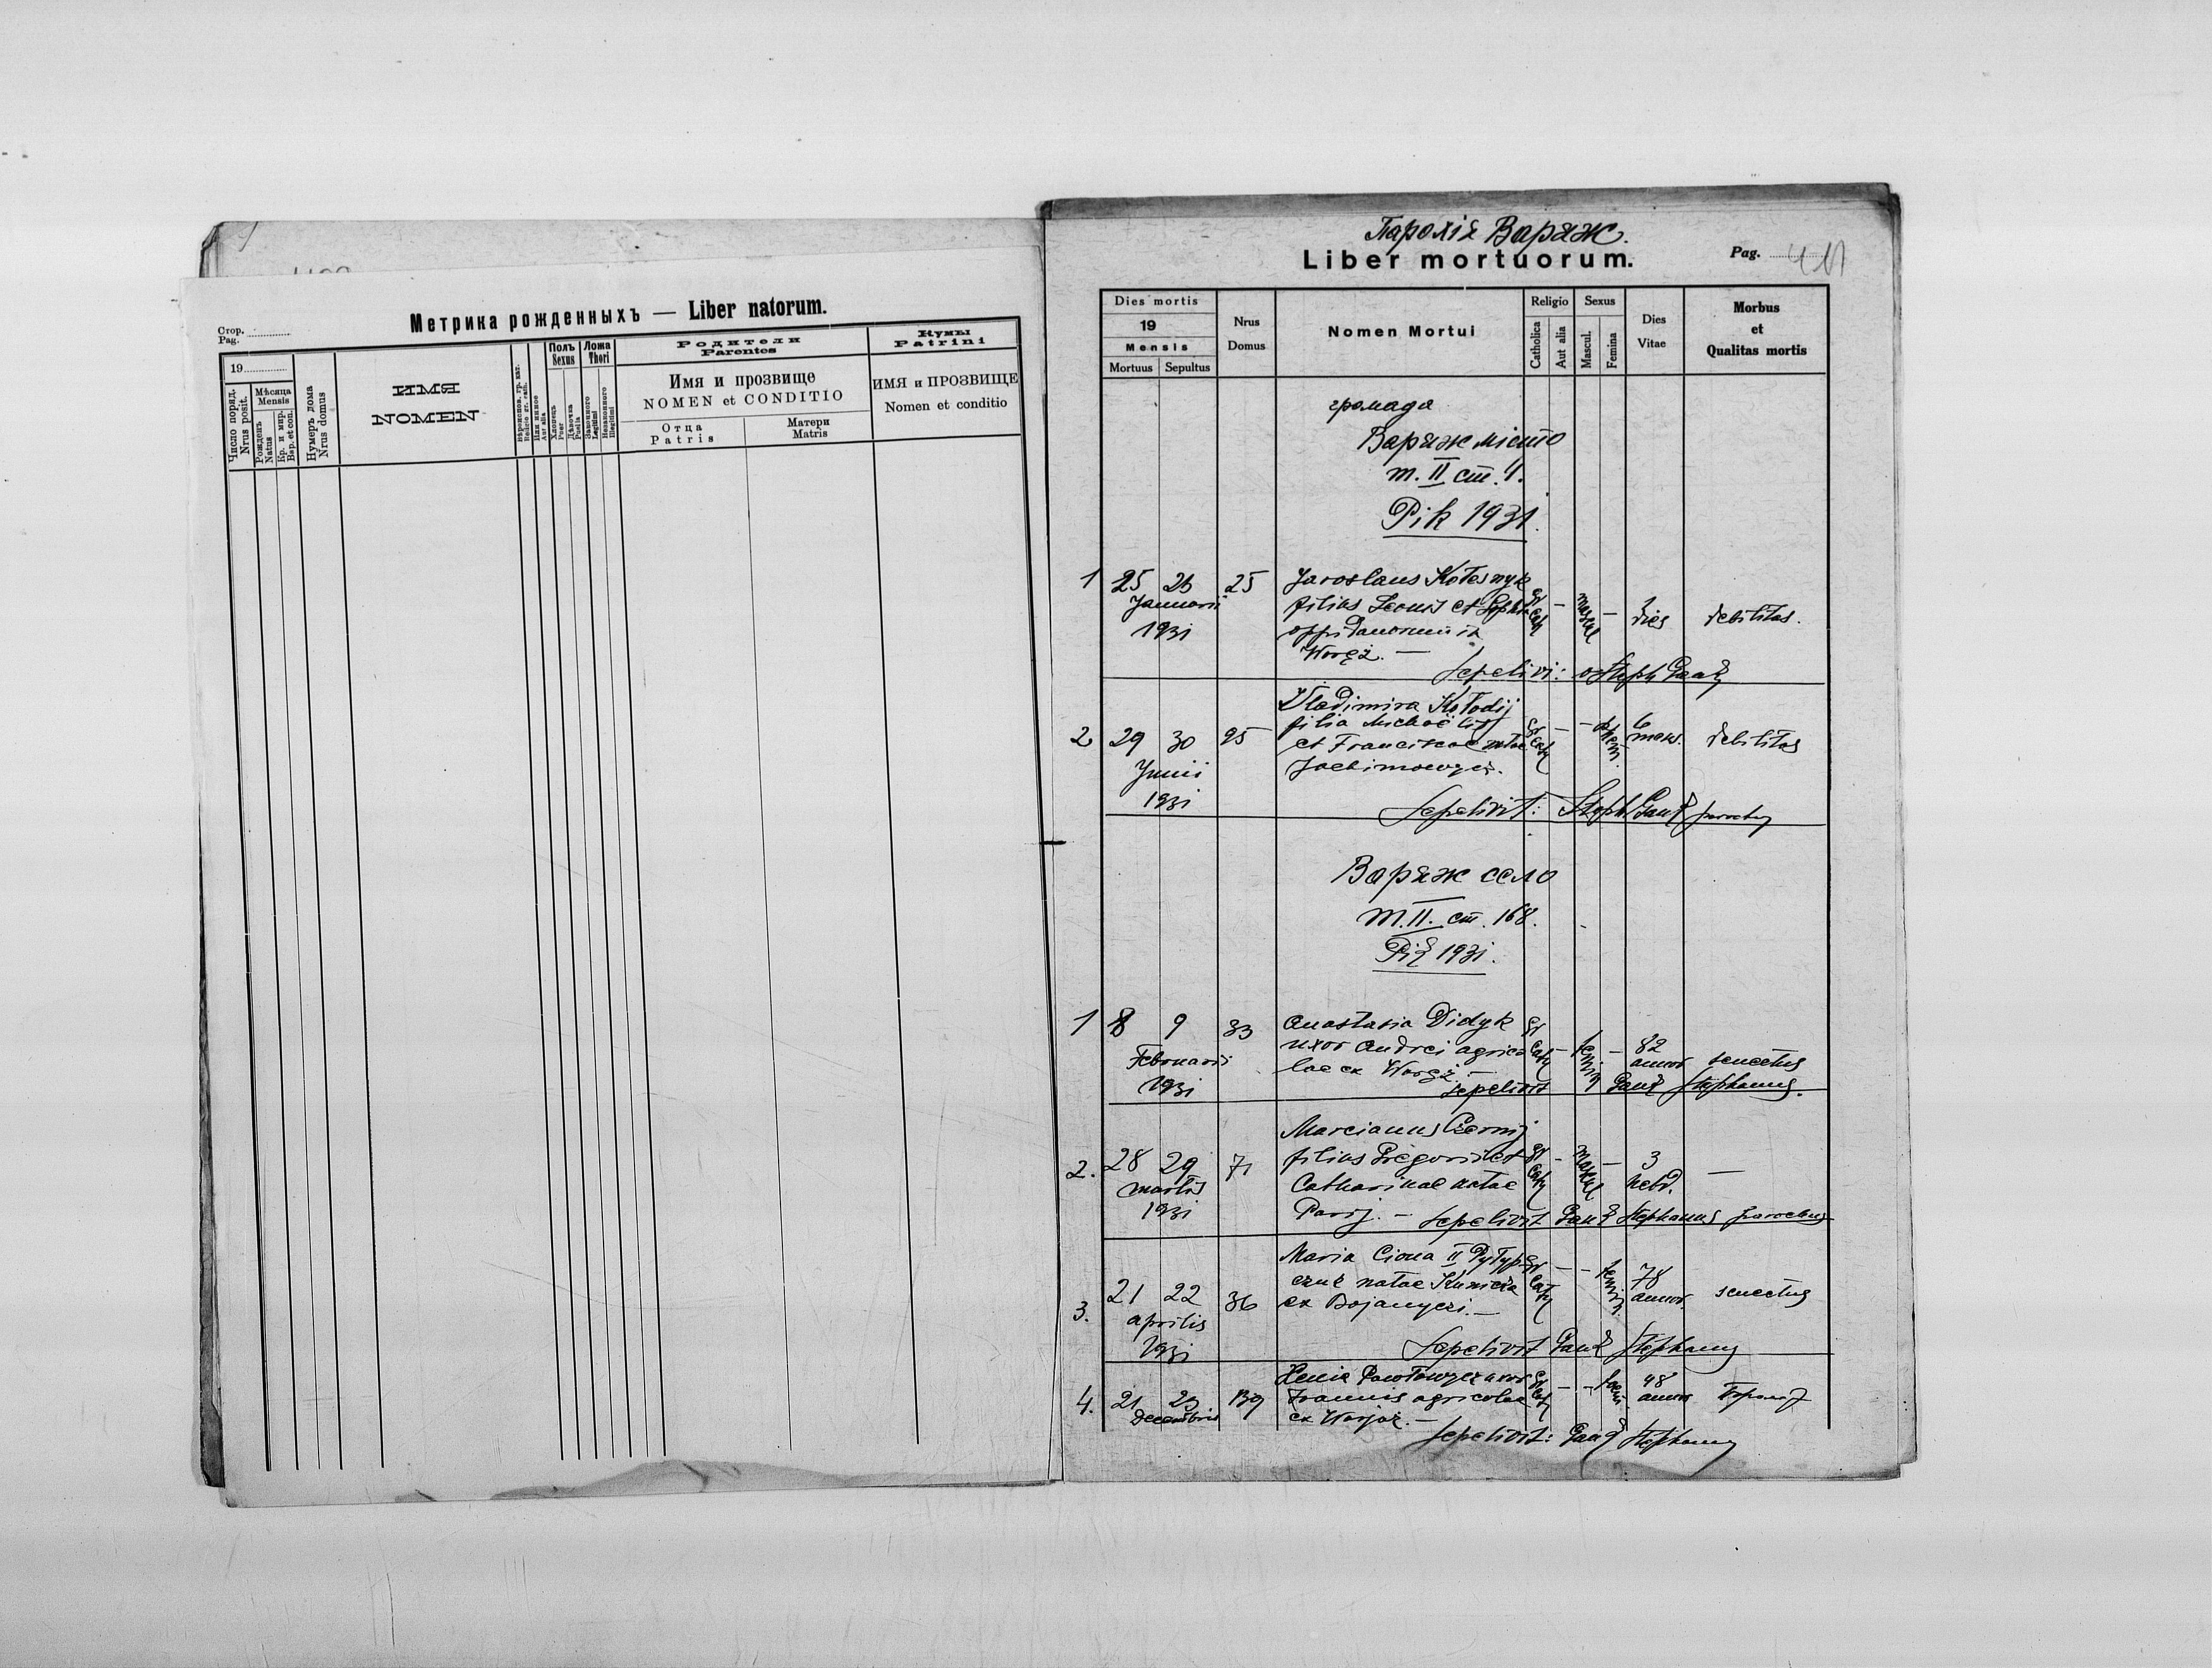 Стор.
Pag.
Метрика рожденныхъ — Liber natorum.
19
Число поряд.
Nrus posit.
Мѣсяца
Mensis
Рожденъ
Natus
Кр. и мир.
Bap. et con.
Нумеръ дома
Nrus domus
ИМЯ
NOMEN
Или инное
Aut alia
Полъ
Sexus
Хлопець
Puer
Дѣвочка
Puella
Ложа
Thori
Законного
Legitimi
Незаконного
Illegitimi
Родители
Parentes
Имя и прозвище
NOMEN et CONDITIO
Отца
Patris
Матери
Matris
Кумы
Patrini
ИМЯ и ПРОЗВИЩЕ
Nomen et conditio
Парохія Варяж.
Liber mortuorum.
Pag. 411
Dies mortis
19
Mensis
Mortuus Sepultus
Nrus
Domus
Nomen Mortui
Religio
Catholica
Aut alia
Sexus
Mascul.
Femina
Dies
Vitae
Morbus
et
Qualitas mortis
громада
Варяж місто
т. II ст. 1.
Рік 1931.
1 25 25 Jaroslaus Kołesnyk
Januarii filius Leonis et
1931 oppidanorum ex
Woręż. —
gr cath — mascul — 1 dies debilitas.
Sepelivi: Steph
Vladimira Kołodij
filia Michaëlis
2 29 30 25 et Franciscae natae
Junii Jachimowycz.
1931
gr cath — — 6 mens. debilitas
Sepelivit: Steph parochus
Варяж село
т. II. ст. 168.
Рік 1931.
1 8 9 33 Anastasia Didyk
Februarii uxor Andrei agrico
1931 lae ex Woręż. —
gr cath — femin — 82 annor senectus
Sepelivit Stephanus.
Marcianus Czernij
2. 28 29 71 filius Gregorii et
martis Catharinae natae
1931 — gr cath — mascul — 3 hebd. —
Sepelivit Stephanus parochus
Maria Ciona II
natae
3. 21 22 36 ex Bojanyczi. —
aprilis
1931
gr cath — — femin 78 annor. senectus
Sepelivit Stephanus
4. 21 23 139 Xenia Pawłowycz uxor
Decembris Ioannis agricolae
ex —
gr cath — — 48 annor
Sepelivit: Stephanus